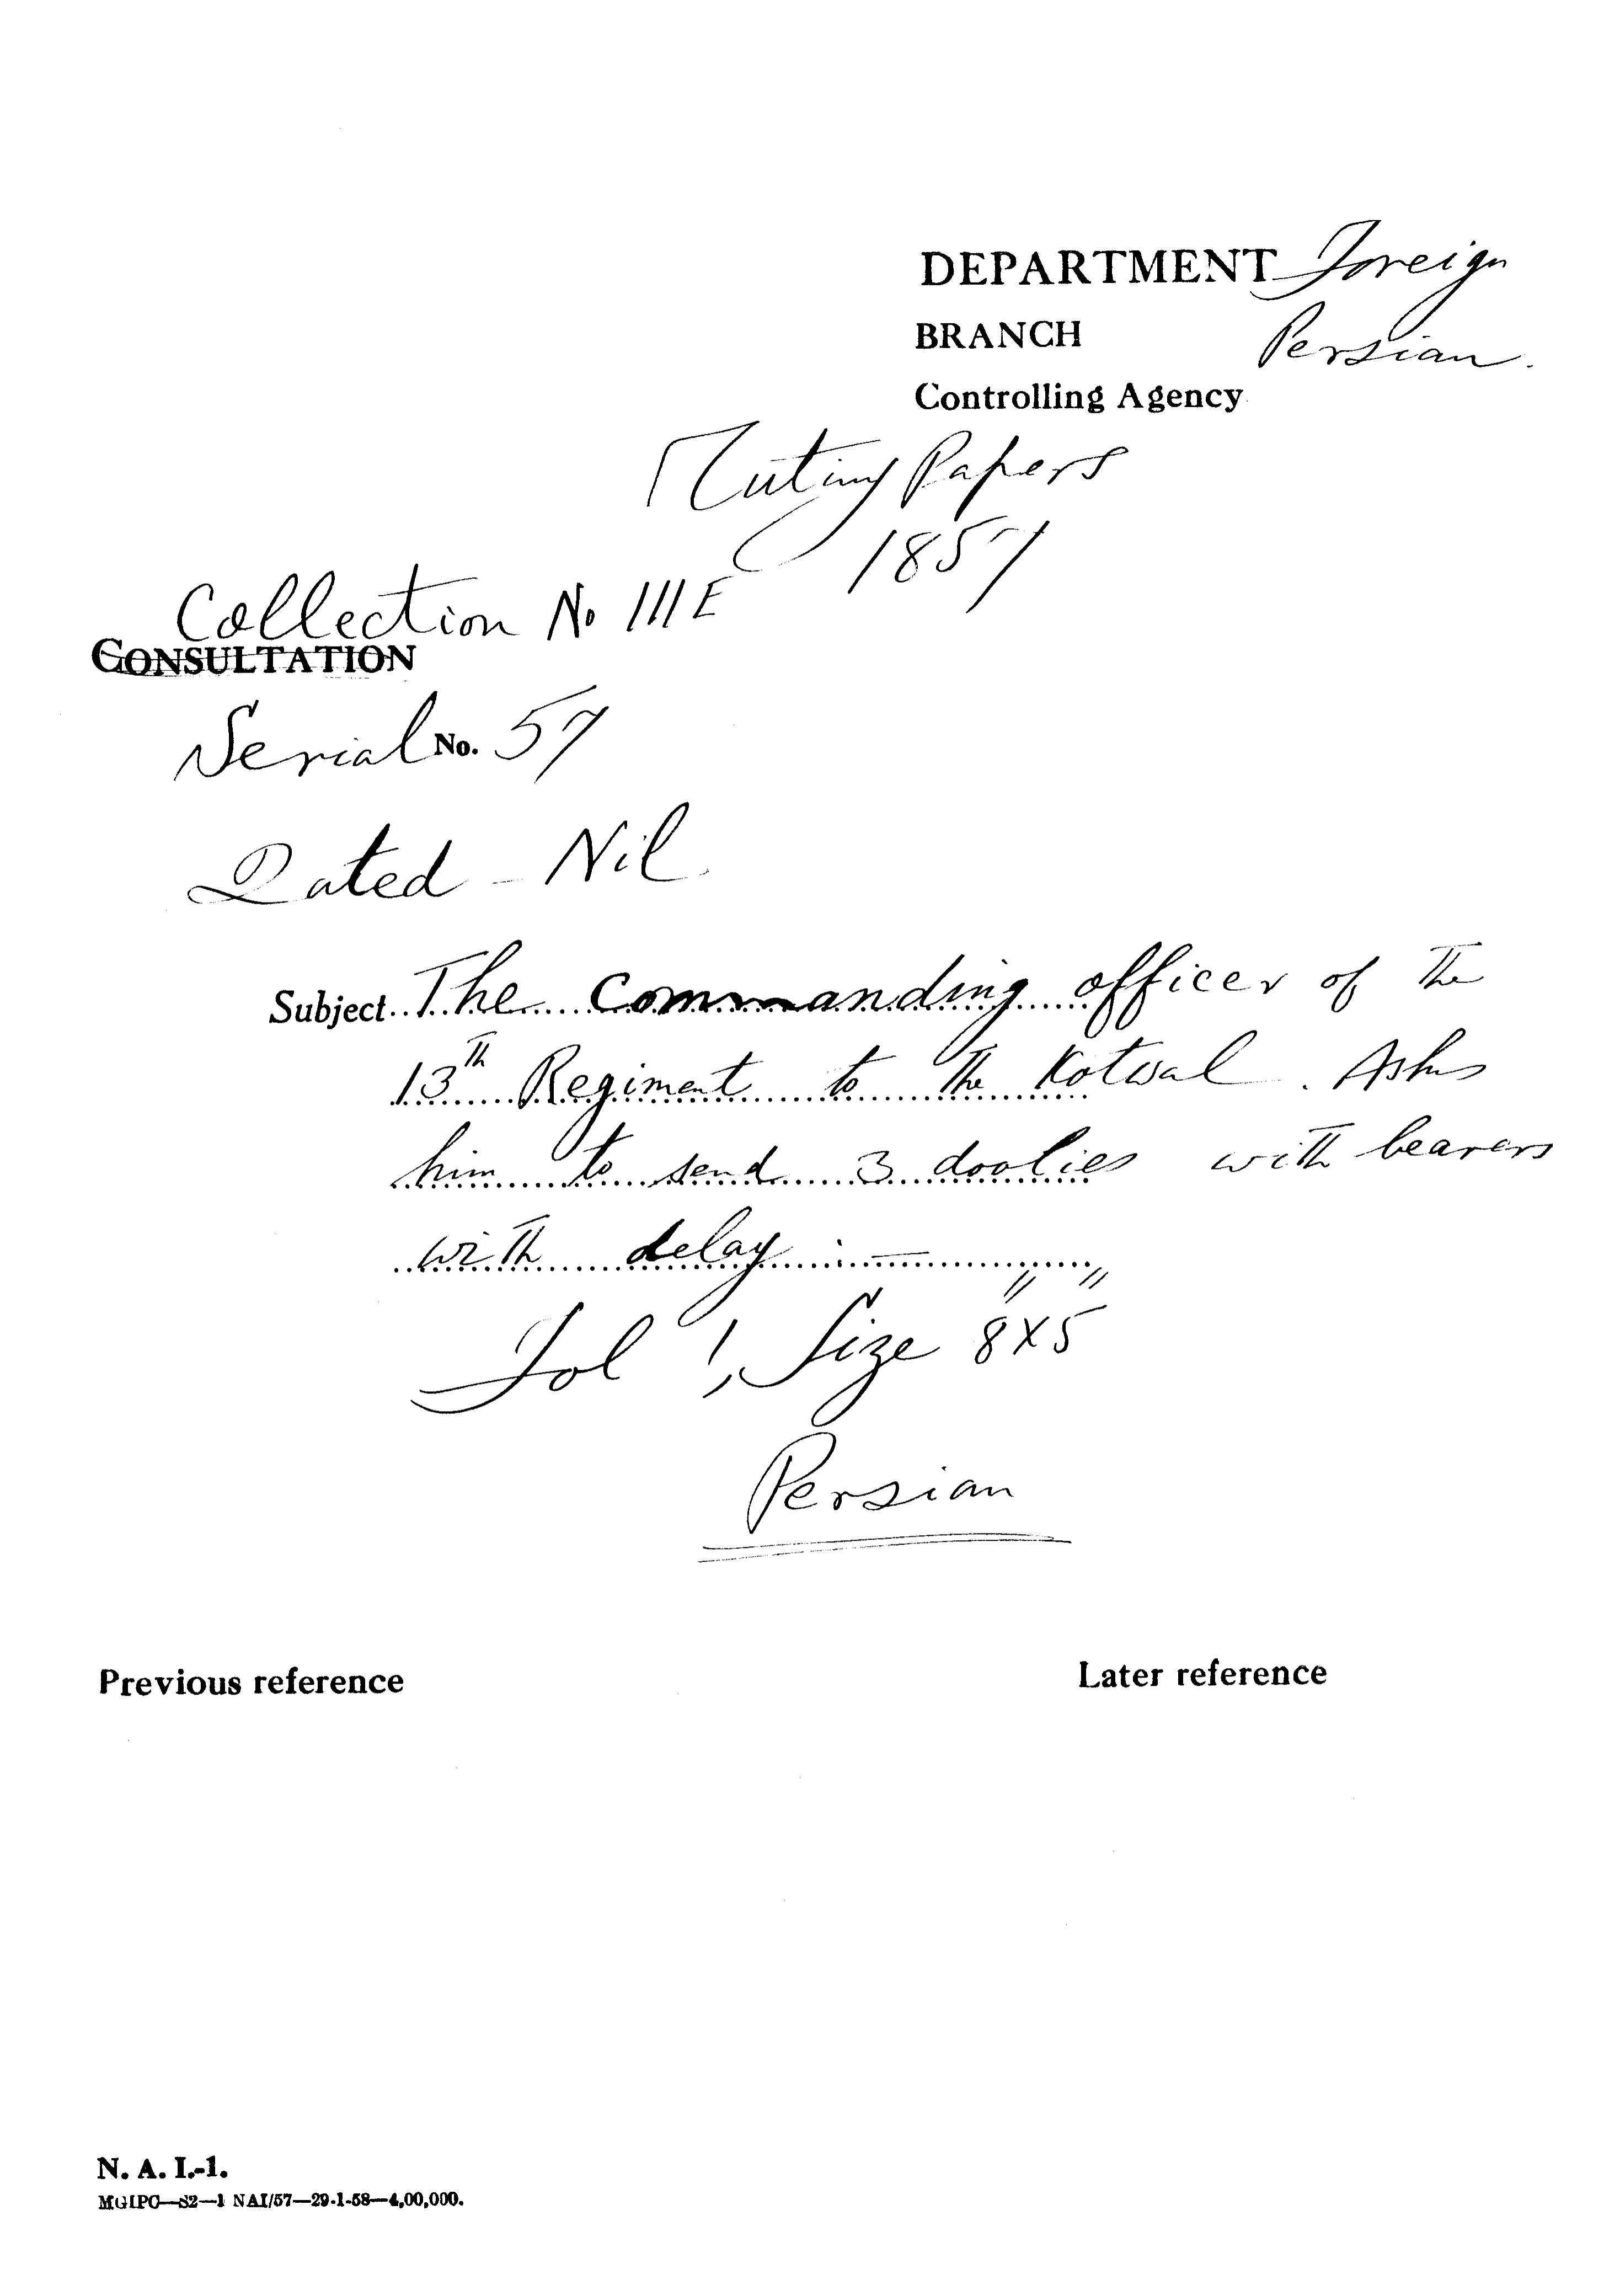 DEPARTMENT Foreign
BRANCH Persian.
Controlling Agency
Mutiny Papers
1857
Collection No III E
CONSULTATION
Serial No. 57
Dated - Nil
Subject The Commanding officer of the
13th Regiment to the Kotwal. Asks
him to send 3 doolies with bearers
with delay.
Fol 1, Size 8"x5"
Persian
Previous reference Later reference
N. A. I.-1.
MGIPC—S2—1 NAI/57—29-1-58—4,00,000.